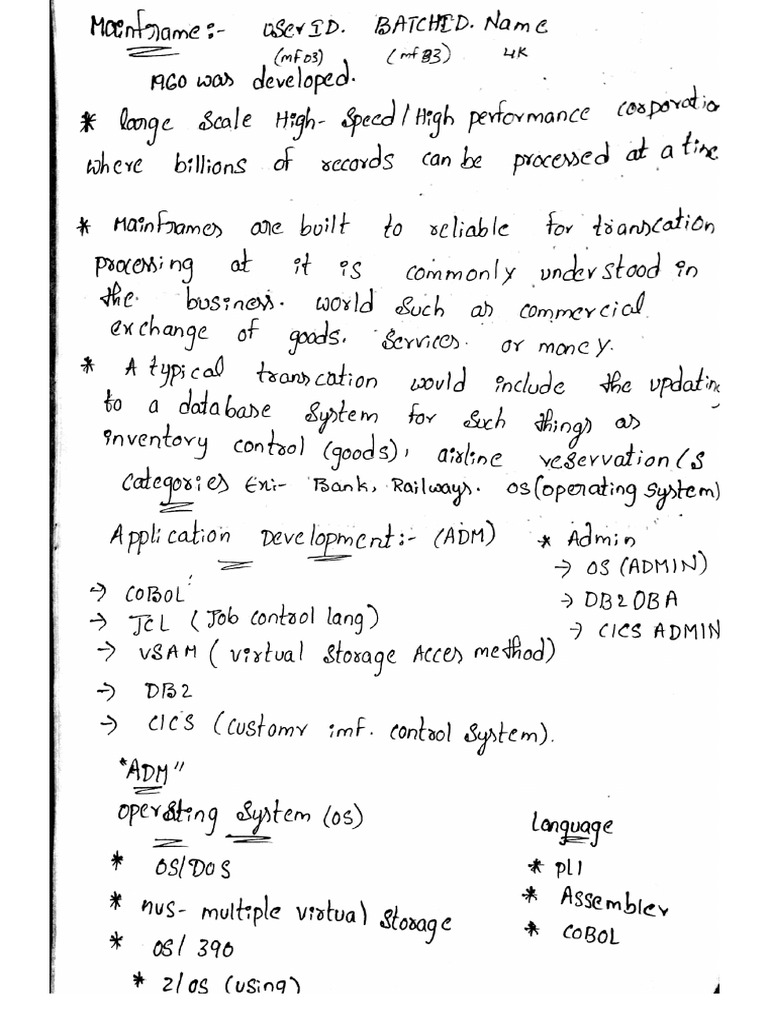 Mainframe:- userID. BATCHID. Name
(mf03) (mf83) 4K
1960 was developed.
* large scale High-Speed/High performance corporatio
where billions of records can be processed at a time
* Mainframes are built to reliable for transcation
processing at it is commonly understood in
the business. world such as commercial
exchange of goods. services. or money.
* A typical transcation would include the updating
to a database system for such things as
inventory control (goods), airline reservation(s
categories Ex:- Bank, Railways. OS(operating system)
Application Development:- (ADM) * Admin
→ OS (ADMIN)
→ COBOL
→ DB2 DBA
→ JCL (Job control lang)
→ CICS ADMIN
→ VSAM (virtual storage Acces method)
→ DB2
→ CICS (customr imf. control system).
"ADM"
operating system (OS)
Language
* OS/DOS
* pl1
* mvs- multiple virtual storage
* Assembler
* OS/390
* COBOL
* z/os (using)